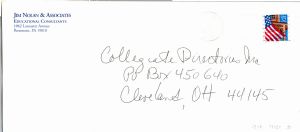 JIM NOLAN & ASSOCIATES
EDUCATIONAL CONSULTANTS
Collegiate Directories Inc
PO Box 450640
Cleveland, OH 44145